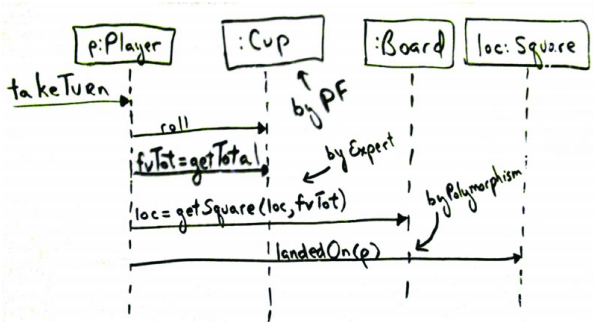 p:Player
:Cup
:Board
loc: Square
takeTurn
by PF
roll
fvTot=getTotal
by Expert
loc=getSquare(loc,fvTot)
by Polymorphism
landedOn(p)